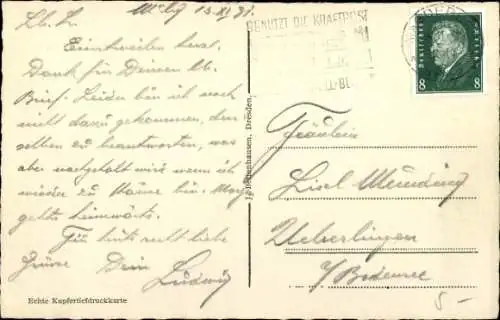 Mbg 15.XI.31.
Lb. Ln.
Einstweilen herzl.
Dank für Deinen lb.
Brief. Leider bin ich noch
nicht dazu gekommen, den-
selben zu beantworten, was
aber nachgeholt wird wenn ich
wieder zu Hause bin. Morg.
gehts heimwärts.
Für heute recht liebe
Grüsse Dein
Ludwig
Echte Kupfertiefdruckkarte
Dresden
BENUTZT DIE KRAFTPOST
Deutsches Reich
8 8
Fräulein
Lisel
Ueberlingen
a/Bodensee
5-